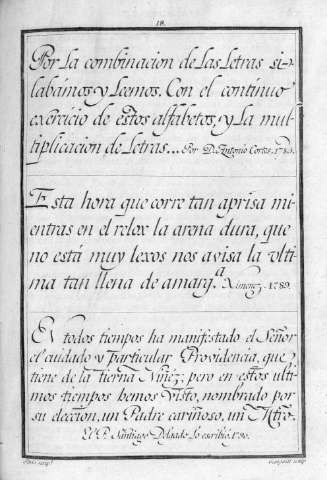 18.
Por la combinacion de las Letras si-
labámos, y Leemos. Con el contínuo
exercicio de estos alfabetos, y la mul
tiplicacion de Letras... Por D. Antonio Cortes. 1784.
Esta hora que corre tan aprisa mi
entras en el relox la arena dura, que
no está muy lexos nos avisa la vlti
ma tan llena de amarg.a Ximenez. 1789.
En todos tiempos ha manifestado el Señor
el cuidado y particular Providencia, que
tiene de la Tierna Niñéz; pero en estos ulti
mos tiempos hemos Visto, nombrado por
su eleccion, un Padre cariñoso, un Mtro.
El P. Santiago Delgado lo escribió, 1790.